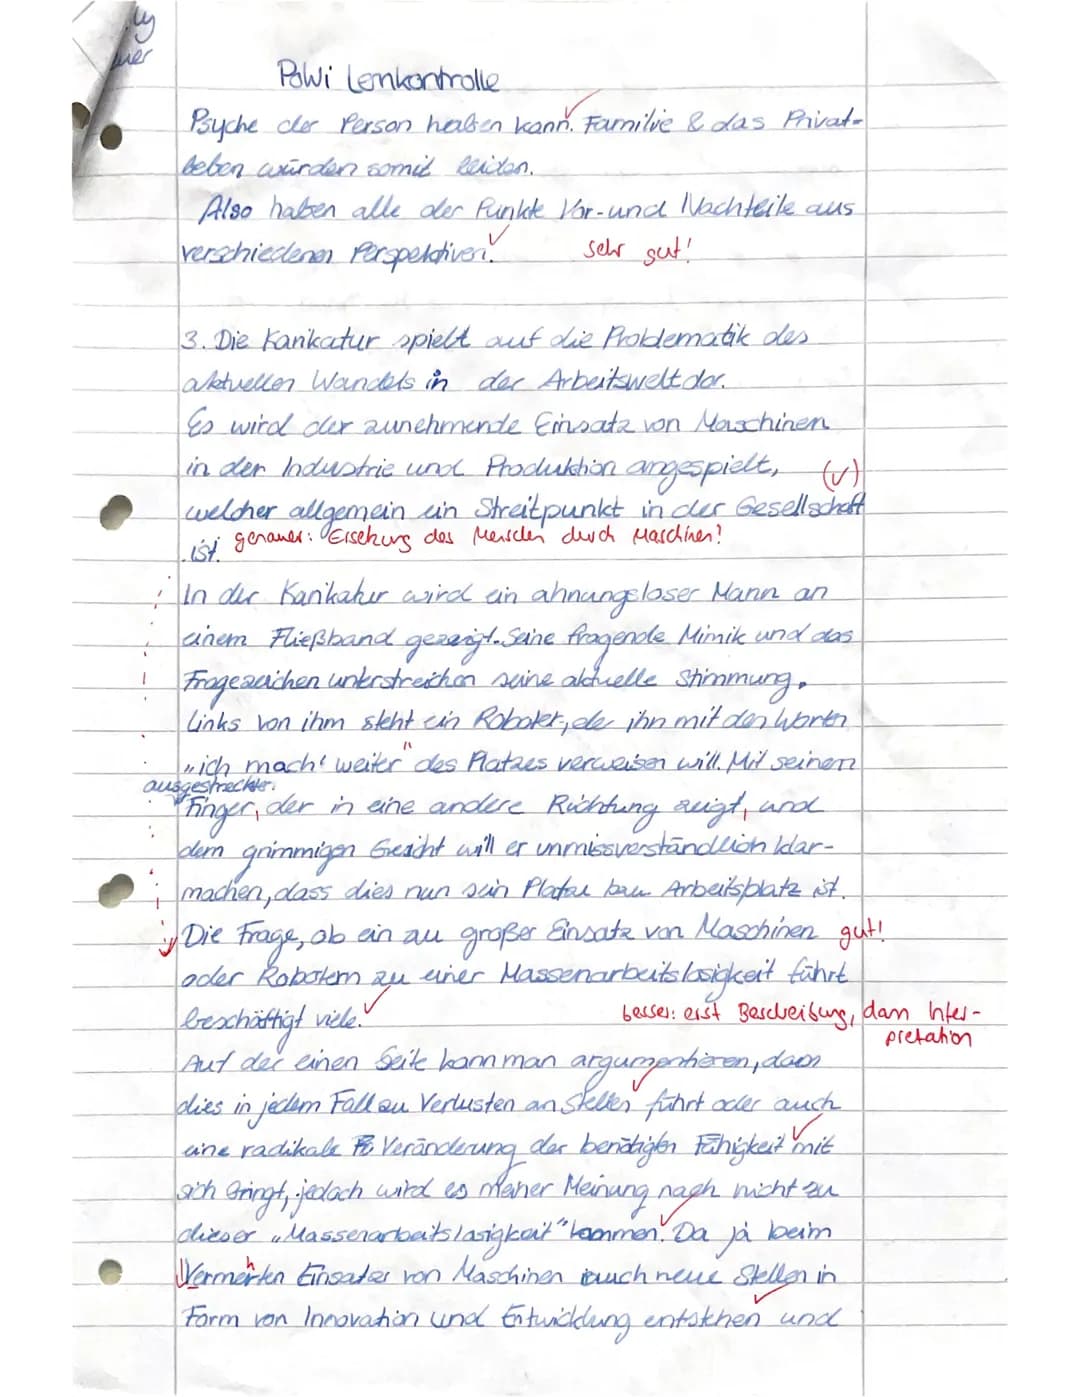 ly
uer
PoWi Lernkontrolle
Psyche der Person haben kann. Familie & das Privat-
leben würden somit leiden.
Also haben alle der Punkte Vor- und Nachteile aus
verschiedenen Perspektiven. sehr gut!
3. Die Karikatur spielt auf die Problematik des
aktuellen Wandels in der Arbeitswelt dar.
Es wird der zunehmende Einsatz von Maschinen
in der Industrie und Produktion angespielt, (✓)
welcher allgemein ein Streitpunkt in der Gesellschaft
ist. genauer: Ersetzung des Menschen durch Maschinen?
In der Karikatur wird ein ahnungsloser Mann an
einem Fließband gezeigt. Seine fragende Mimik und das
Fragezeichen unterstreichen seine aktuelle Stimmung.
Links von ihm steht ein Roboter, der ihn mit den Worten
„ich mach' weiter" des Platzes verweisen will. Mit seinem
ausgestreckten
Finger, der in eine andere Richtung zeigt, und
dem grimmigen Gesicht will er unmissverständlich klar-
machen, dass dies nun sein Platz bzw. Arbeitsplatz ist.
Die Frage, ob ein zu großer Einsatz von Maschinen gut!
oder Robotern zu einer Massenarbeitslosigkeit führt
beschäftigt viele. besser: erst Beschreibung, dann Inter-
pretation
Auf der einen Seite kann man argumentieren, dass
dies in jedem Fall zu Verlusten an Stellen führt oder auch
eine radikale Veränderung der benötigten Fähigkeit mit
sich bringt, jedoch wird es meiner Meinung nach nicht zu
dieser „Massenarbeitslosigkeit" kommen. Da ja beim
Vermehrten Einsatzes von Maschinen auch neue Stellen in
Form von Innovation und Entwicklung entstehen und